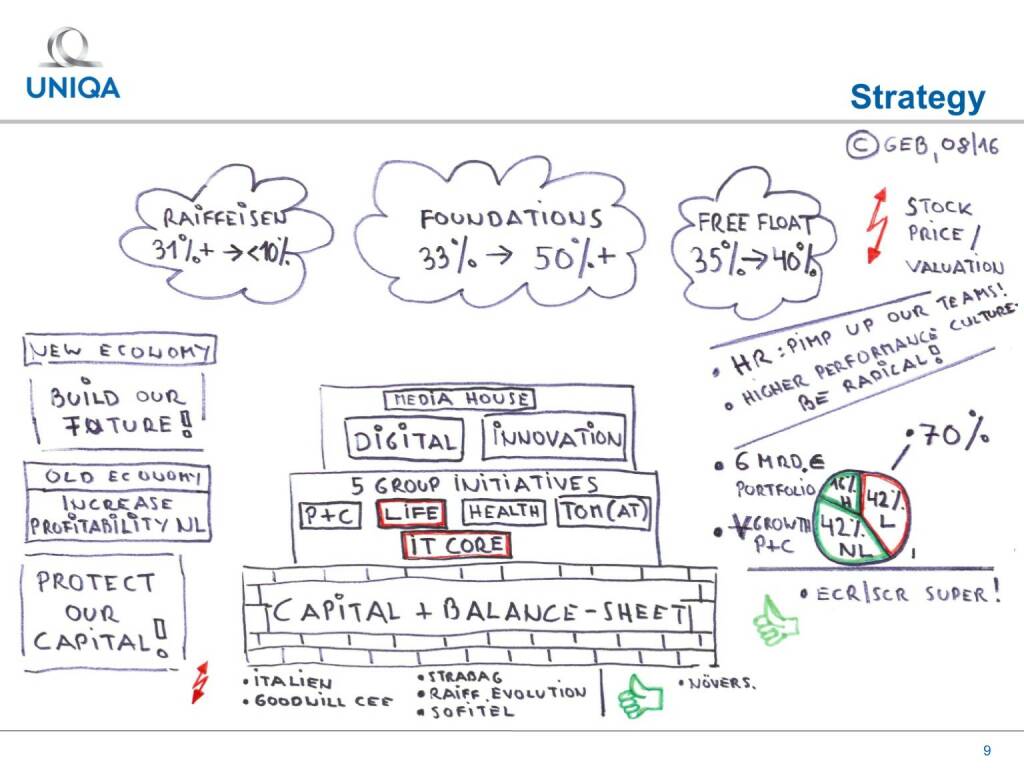 UNIQA
Strategy
© GEB, 08/16
RAIFFEISEN
31%+ → <10%
FOUNDATIONS
33% → 50%+
FREE FLOAT
35% → 40%
STOCK
PRICE/
VALUATION
• HR: PIMP UP OUR TEAMS!
• HIGHER PERFORMANCE CULTURE.
BE RADICAL!
NEW ECONOMY
BUILD OUR
FUTURE!
OLD ECONOMY
INCREASE
PROFITABILITY NL
PROTECT
OUR
CAPITAL!
MEDIA HOUSE
DIGITAL
INNOVATION
5 GROUP INITIATIVES
P+C
LIFE
HEALTH
TOM(AT)
IT CORE
CAPITAL + BALANCE-SHEET
• ITALIEN
• GOODWILL CEE
• STRABAG
• RAIFF. EVOLUTION
• SOFITEL
• NÖVERS.
• 70%
• 6 MRD. €
PORTFOLIO
• GROWTH
P+C
16%
H
42%
L
42%
NL
• ECR/SCR SUPER!
9